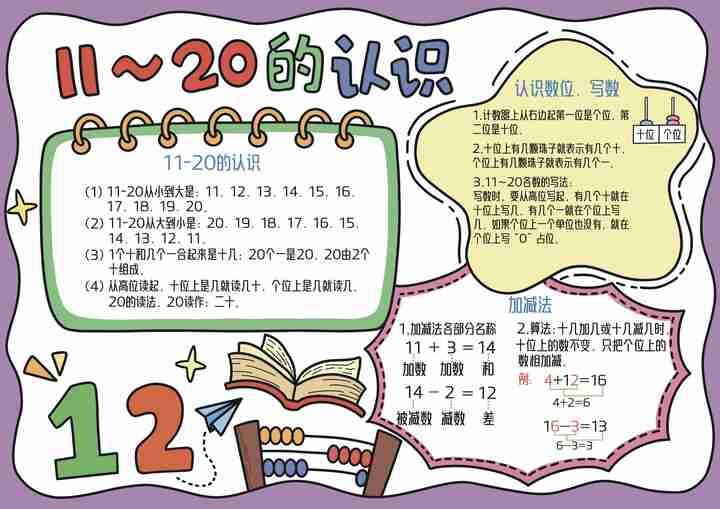 11~20的认识
11-20的认识
(1) 11-20从小到大是：11、12、13、14、15、16、
17、18、19、20。
(2) 11-20从大到小是：20、19、18、17、16、15、
14、13、12、11。
(3) 1个十和几个一合起来是十几；20个一是20，20由2个
十组成。
(4) 从高位读起，十位上是几就读几十，个位上是几就读几，
20的读法，20读作：二十。
认识数位、写数
1.计数器上从右边起第一位是个位，第
二位是十位。
十位 个位
2.十位上有几颗珠子就表示有几个十，
个位上有几颗珠子就表示有几个一。
3.11~20各数的写法：
写数时，要从高位写起，有几个十就在
十位上写几，有几个一就在个位上写
几，如果个位上一个单位也没有，就在
个位上写“0”占位。
加减法
1.加减法各部分名称
11 + 3 = 14
加数 加数 和
14 - 2 = 12
被减数 减数 差
2.算法：十几加几或十几减几时，
十位上的数不变，只把个位上的
数相加减。
例：4+12=16
4+2=6
16-3=13
6-3=3
12